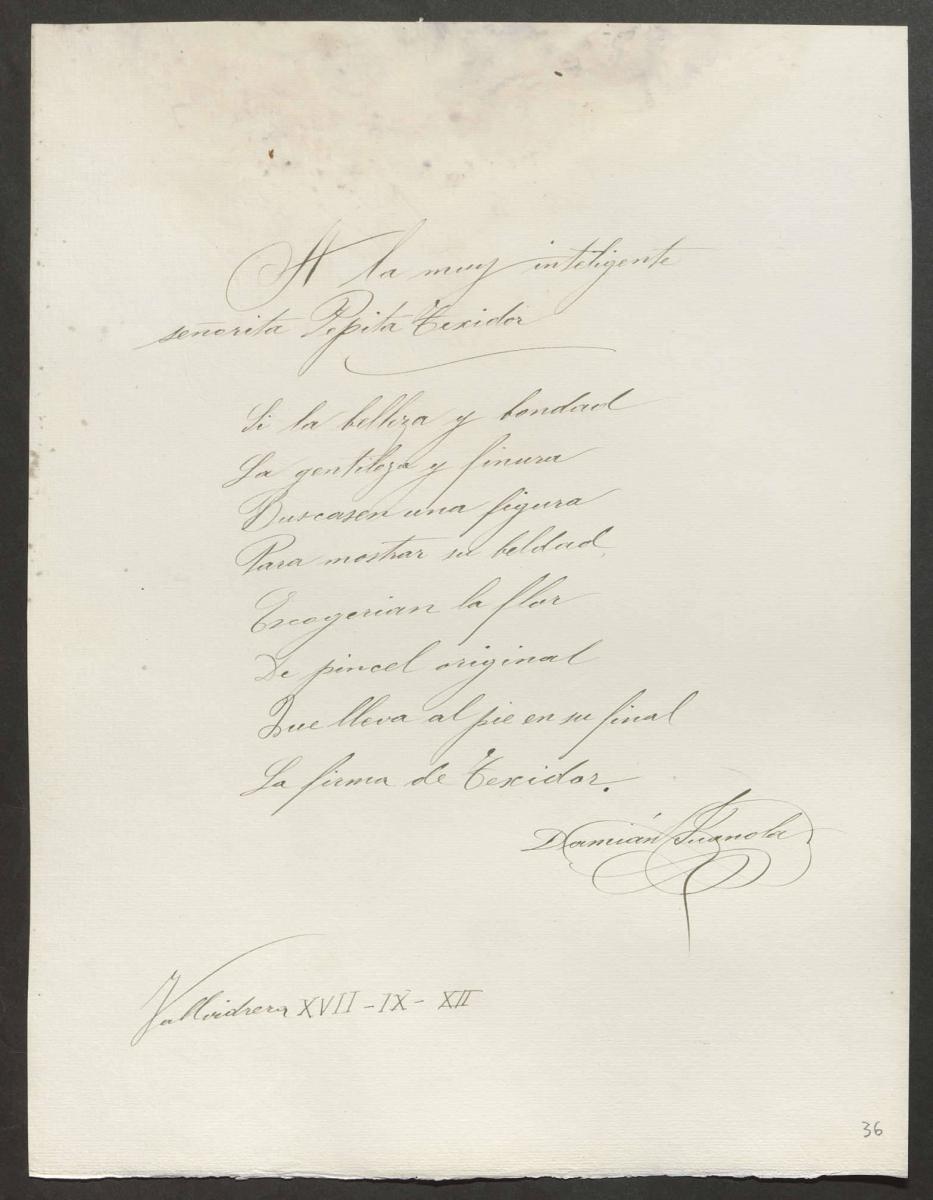 A la muy inteligente
señorita Pepita Texidor
Si la belleza y bondad
La gentileza y finura
Buscasen una figura
Para mostrar su beldad
Escogerian la flor
De pincel original
Que lleva al pie en su final
La firma de Texidor.
Damián Juanola
Vallvidrera XVII-IX-XII
36